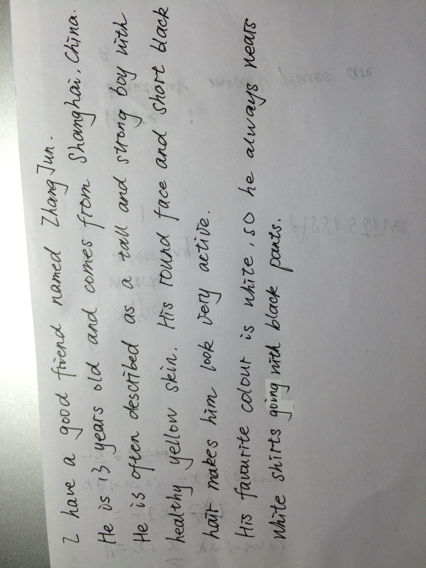 I have a good friend named Zhang Jun.
He is 13 years old and comes from Shanghai, China.
He is often described as a tall and strong boy with
healthy yellow skin. His round face and short black
hair makes him look very active.
His favourite colour is white, so he always wears
white shirts going with black pants.
Assistive